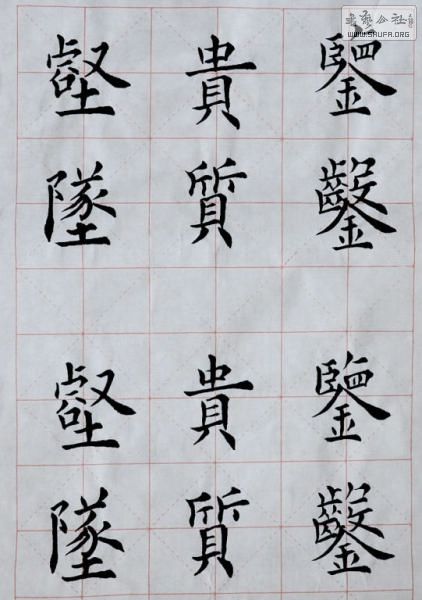 書藝公社
WWW.SHUFA.ORG
鑒鑿
貴質
壑墜
鑒鑿
貴質
壑墜